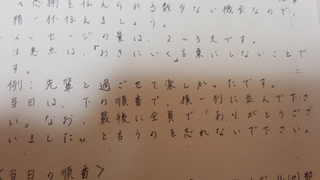 へ感謝を伝えられる数少ない機会なので、
精一杯伝えましょう。
・メッセージの量は、2〜3文です。
・注意点は、「おきにいく」言葉にしないことで
す。
例：先輩と過ごせて楽しかったです。
当日は、下の順番で、横一列に並んで下さ
い。なお、最後に全員で「ありがとうござ
いました。」と言うのを忘れないで下さい。
〈当日の順番〉